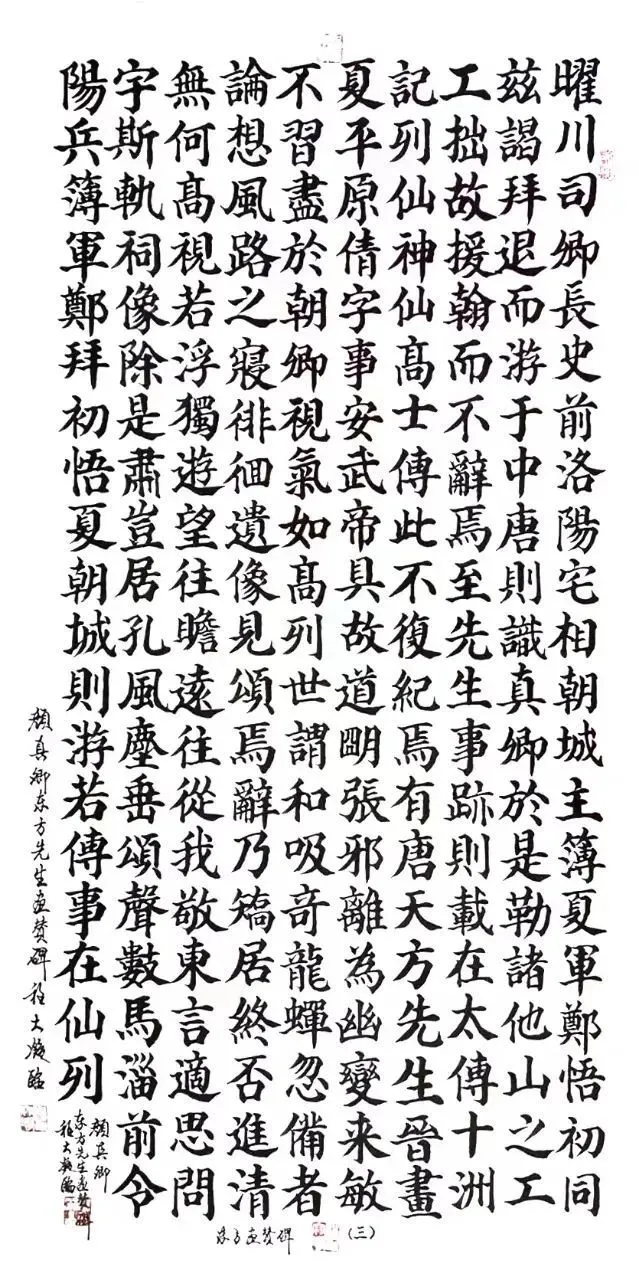 曜川司卿長史前洛陽宅相朝城主簿夏軍鄭悟初同
兹謁拜退而游于中唐則識真卿於是勒諸他山之工
工拙故援翰而不辭焉至先生事跡則載在太傅十洲
記列仙神仙高士傳此不復紀焉有唐天方先生晉畫
夏平原倩字事安武帝具故道朙張邪離為幽變来敏
不習盡於朝卿視氣如高列世謂和吸奇龍蟬忽備者
論想風路之寢徘徊遺像見頌焉辭乃篇居終否進清
無何高視若浮獨遊望往瞻遠往從我敬東言適思問
宇斯軌祠像除是肅豈居孔風塵垂頌聲數馬淄前令
陽兵簿軍鄭拜初悟夏朝城則游若傳事在仙列
顏真卿東方先生畫贊碑 程大凝臨
顏真卿
东方先生畫赞碑
程大凝臨
东方畫赞碑 （三）